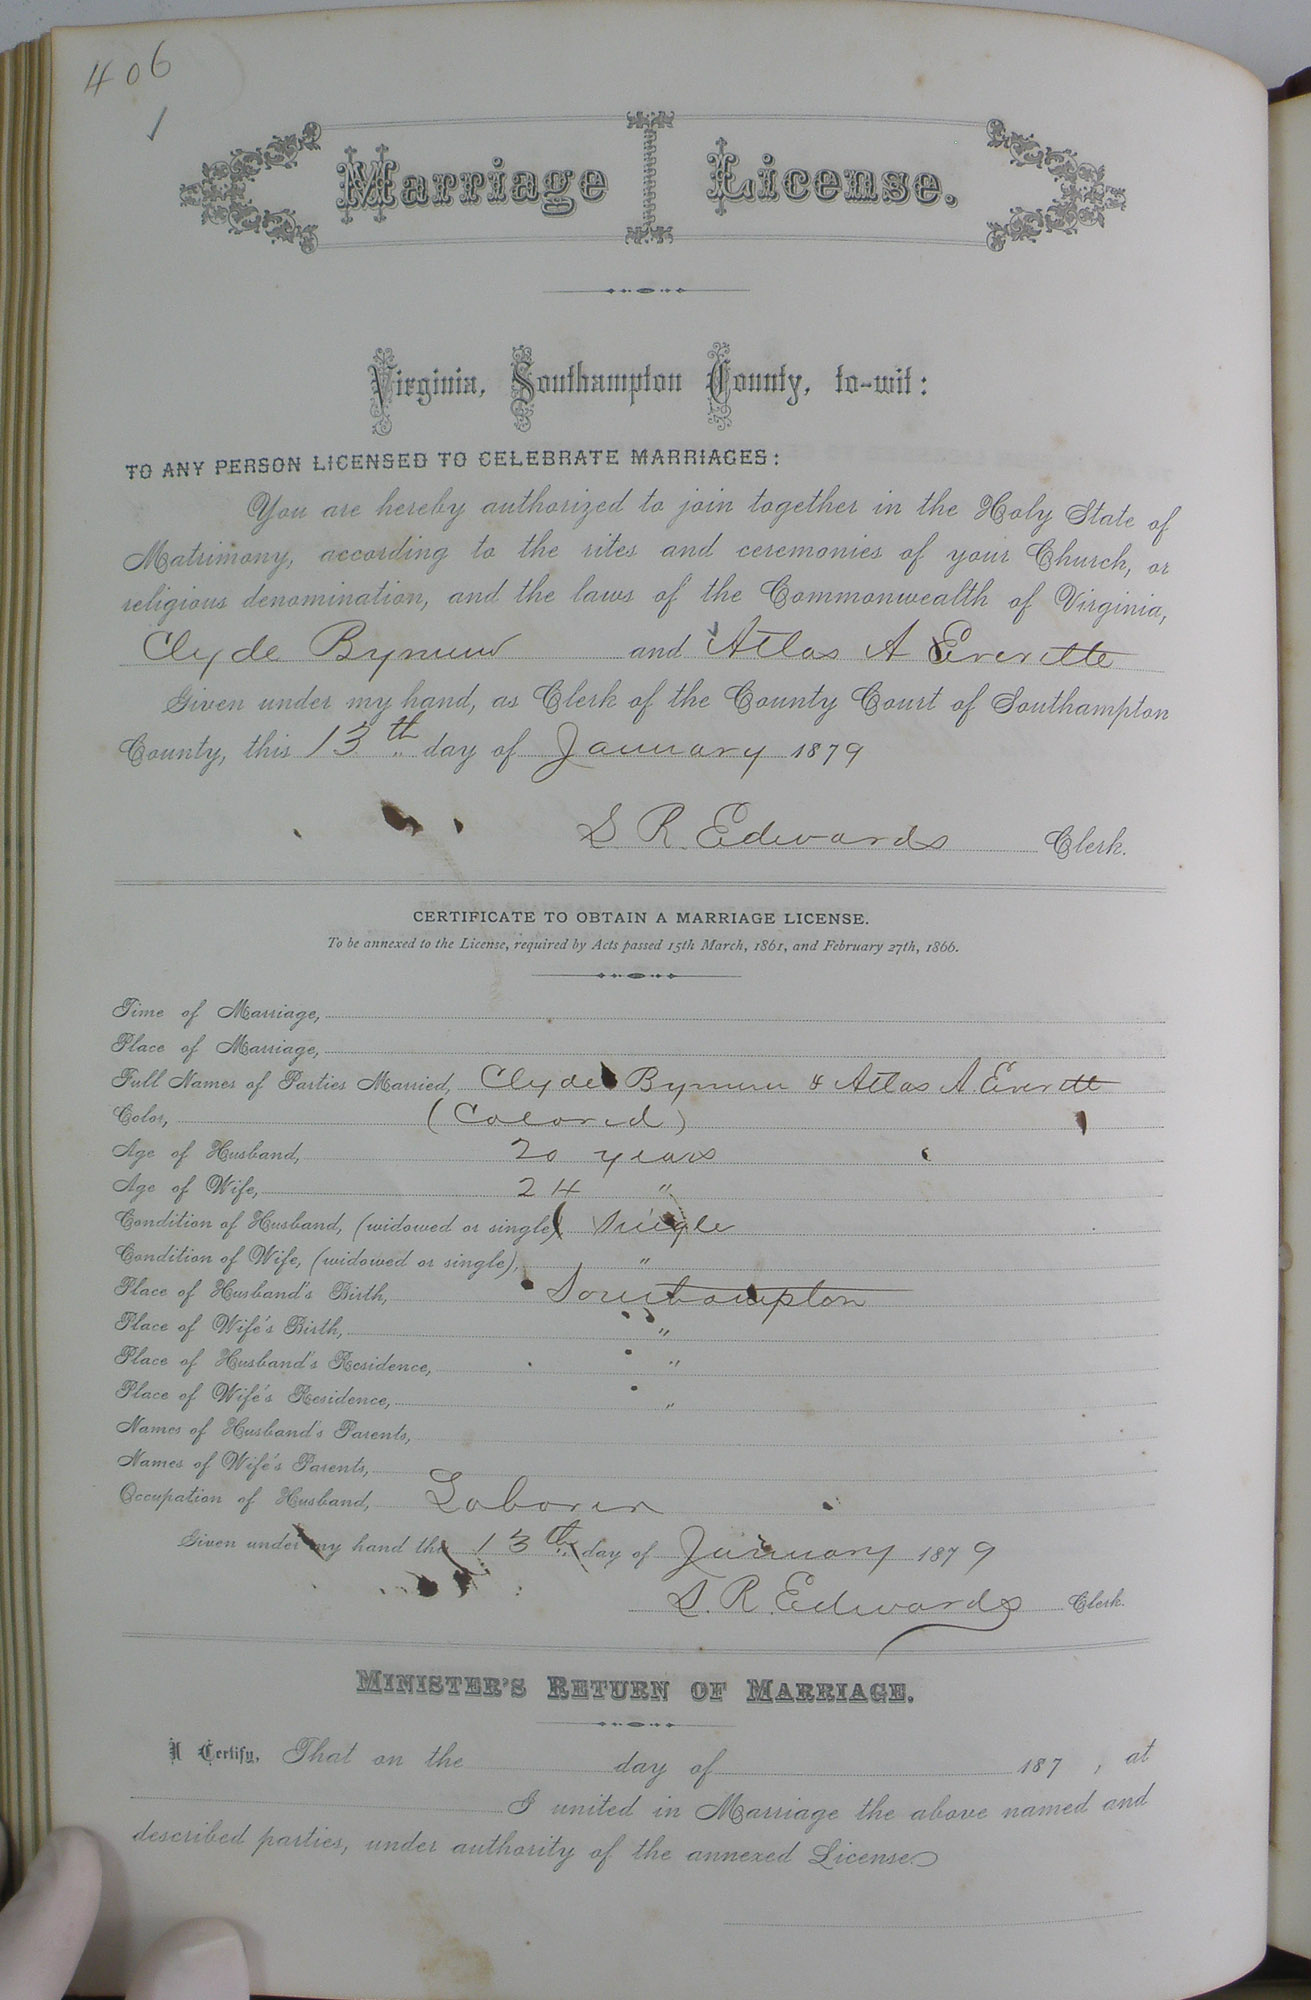 406
1
Marriage License.
Virginia, Southampton County, to-wit:
TO ANY PERSON LICENSED TO CELEBRATE MARRIAGES:
You are hereby authorized to join together in the Holy State of
Matrimony, according to the rites and ceremonies of your Church, or
religious denomination, and the laws of the Commonwealth of Virginia,
Clyde Bynum and Atlas A Everette
Given under my hand, as Clerk of the County Court of Southampton
County, this 13th day of January 1879
L. R. Edwards Clerk.
CERTIFICATE TO OBTAIN A MARRIAGE LICENSE.
To be annexed to the License, required by Acts passed 15th March, 1861, and February 27th, 1866.
Time of Marriage,
Place of Marriage,
Full Names of Parties Married, Clyde Bynum & Atlas A. Everett
Color, (Colored)
Age of Husband, 20 years
Age of Wife, 24 "
Condition of Husband, (widowed or single) Single
Condition of Wife, (widowed or single), "
Place of Husband's Birth, Southampton
Place of Wife's Birth, "
Place of Husband's Residence, "
Place of Wife's Residence, "
Names of Husband's Parents,
Names of Wife's Parents,
Occupation of Husband, Laborer
Given under my hand this 13th day of January 1879
L. R. Edwards Clerk.
MINISTER'S RETURN OF MARRIAGE.
I Certify, That on the day of 187 , at
I united in Marriage the above named and
described parties, under authority of the annexed License.